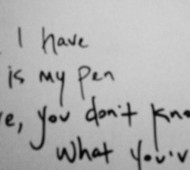 I have
is my pen
e, you don't kno
what you'v